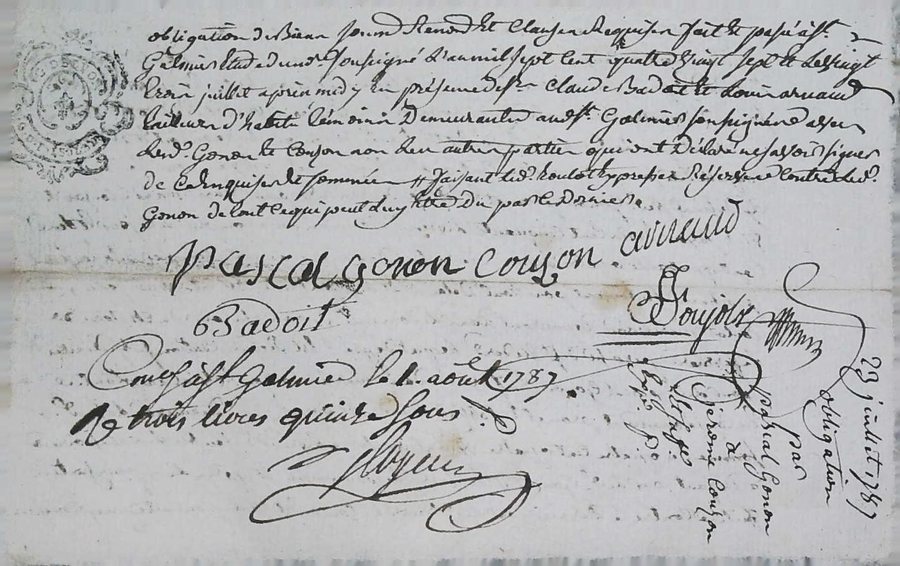 obligation de Biens soumis Renon et Clauses Requises fait et passé à St
Galmier Etude du nore soussigné L'an mil sept cent quatre vingt sept et Le vingt
trois juillet après midy En présence de sr Claude Badoit et Louis arnaud
tailleur d'habits témoins Demeurants aud. St Galmier soussignés avec
Lesd. Gonon et Couzon non Les autres parties qui ont Déclaré ne savoir signer
de ce Enquises et sommées // faisant Led. expresses Réserves contre Led.
Gonon de tout ce qui peut luy être Du par ce Dernier
Pascal gonon Couzon arnaud
Badoit
Poujols
Conté à St Galmier le 1. août 1787
Re trois livres quinze sous
23 juillet 1787
obligation
par
pascal Gonon
à
jérome Couzon